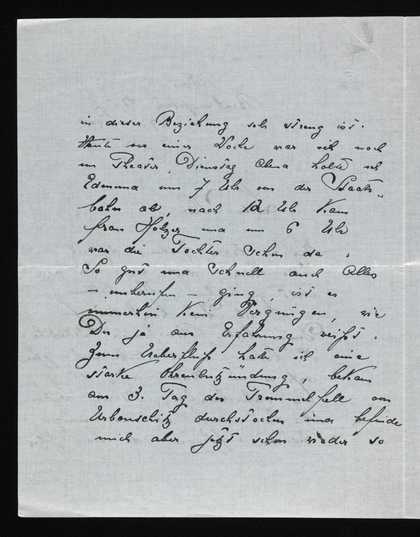 in dieser Beziehung sehr streng ist.
Heute vor einer Woche war ich noch
im Theater, Dienstag Abend holte ich
Edema um 7 Uhr von der Staats-
bahn ab, nach 12 Uhr kam
Frau Holzer und um 6 Uhr
war die Tochter schon da.
So gut und schnell auch Alles
- unberufen - ging, ist es
immerhin kein Vergnügen, wie
Du ja aus Erfahrung weisst.
Zum Ueberfluss hatte ich eine
starke Ohrenentzündung, bekam
am 3. Tag das Trommelfell von
Urbantschitz durchstochen und befinde
mich aber jetzt schon wieder so